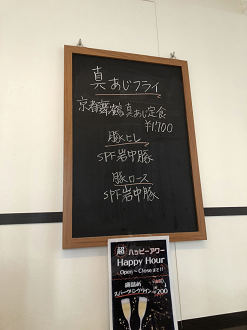 真あじフライ
京都舞鶴真あじ定食
¥1,100
豚ヒレ
SPF岩中豚
豚ロース
SPF岩中豚
超ハッピーアワー
Happy Hour
Open～Closeまで!!
スパークリングワイン
200